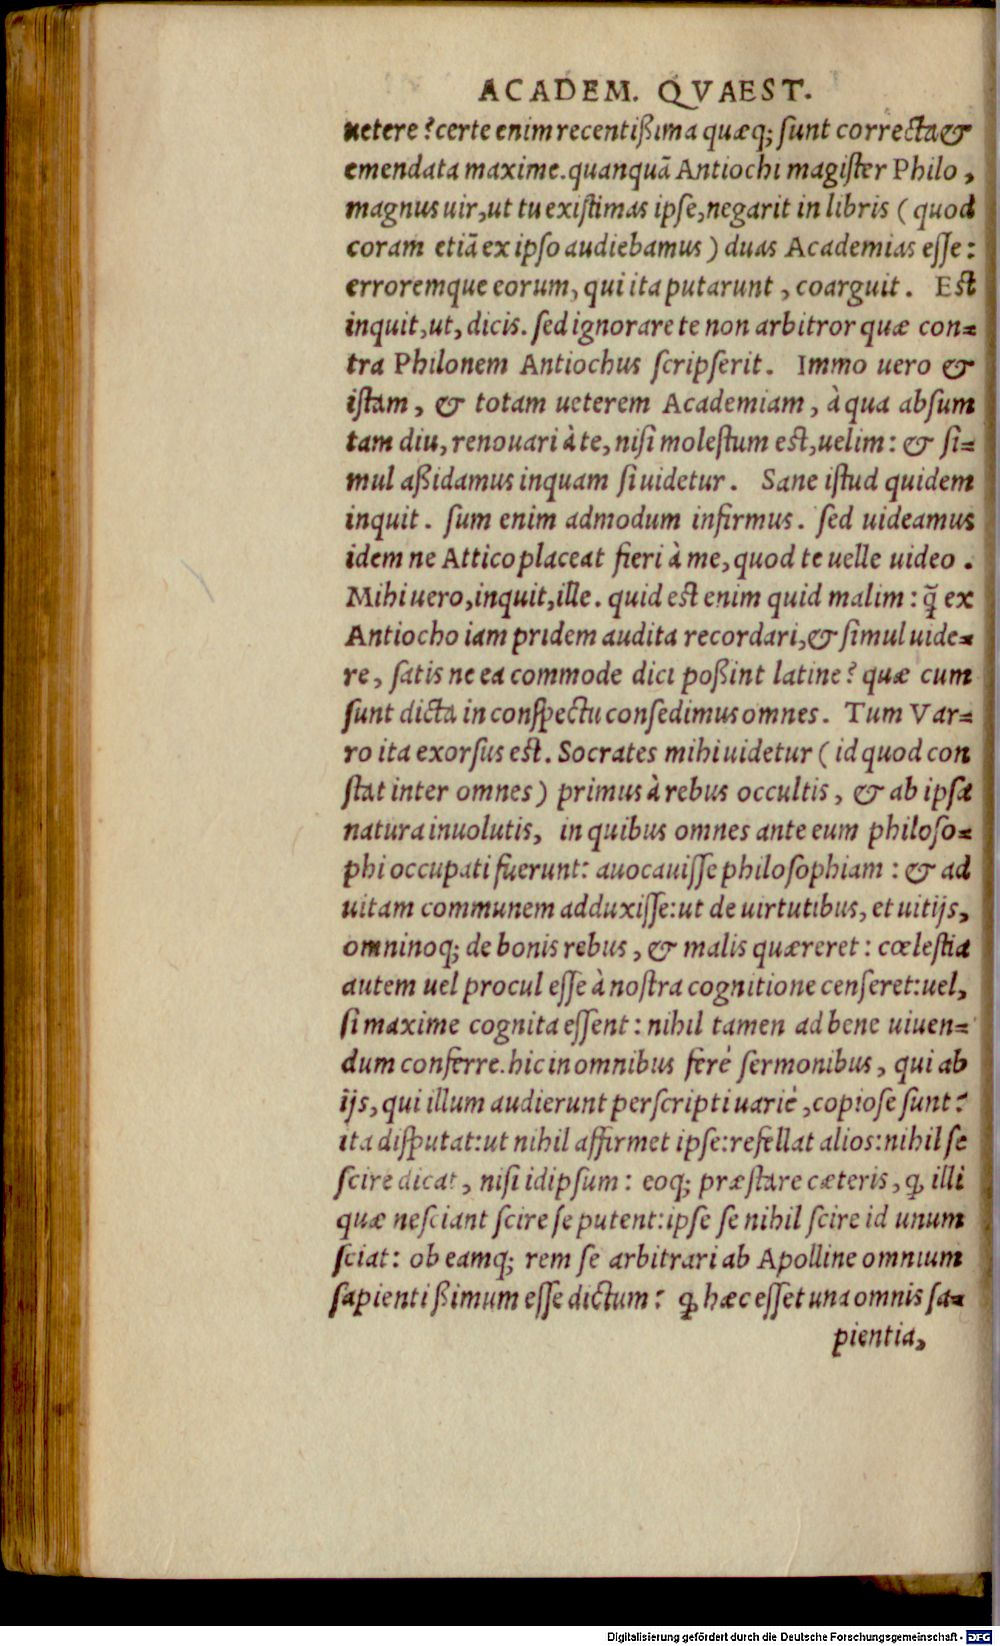 ACADEM. QVAEST.
uetere? certe enim recentißima quæq; sunt correcta &
emendata maxime. quanquã Antiochi magister Philo,
magnus uir, ut tu existimas ipse, negarit in libris (quod
coram etiã ex ipso audiebamus) duas Academias esse:
erroremque eorum, qui ita putarunt, coarguit. Est
inquit, ut, dicis. sed ignorare te non arbitror quæ con=
tra Philonem Antiochus scripserit. Immo uero &
istam, & totam ueterem Academiam, à qua absum
tam diu, renouari à te, nisi molestum est, uelim: & si=
mul aßidamus inquam si uidetur. Sane istud quidem
inquit. sum enim admodum infirmus. sed uideamus
idem ne Attico placeat fieri à me, quod te uelle uideo.
Mihi uero, inquit, ille. quid est enim quid malim: q̃ ex
Antiocho iam pridem audita recordari, & simul uide=
re, satis ne ea commode dici poßint latine? quæ cum
sunt dicta in conspectu consedimus omnes. Tum Var=
ro ita exorsus est. Socrates mihi uidetur (id quod con
stat inter omnes) primus à rebus occultis, & ab ipsa
natura inuolutis, in quibus omnes ante eum philoso=
phi occupati fuerunt: auocauisse philosophiam: & ad
uitam communem adduxisse: ut de uirtutibus, et uitijs,
omninoq; de bonis rebus, & malis quæreret: cœlestia
autem uel procul esse à nostra cognitione censeret: uel,
si maxime cognita essent: nihil tamen ad bene uiuen=
dum conferre. hic in omnibus ferè sermonibus, qui ab
ijs, qui illum audierunt perscripti uariè, copiose sunt:
ita disputat: ut nihil affirmet ipse: refellat alios: nihil se
scire dicat, nisi id ipsum: eoq; præstare cæteris, ꝙ illi
quæ nesciant scire se putent: ipse se nihil scire id unum
sciat: ob eamq; rem se arbitrari ab Apolline omnium
sapientißimum esse dictum: ꝙ hæc esset una omnis sa=
pientia,
Digitalisierung gefördert durch die Deutsche Forschungsgemeinschaft - DFG